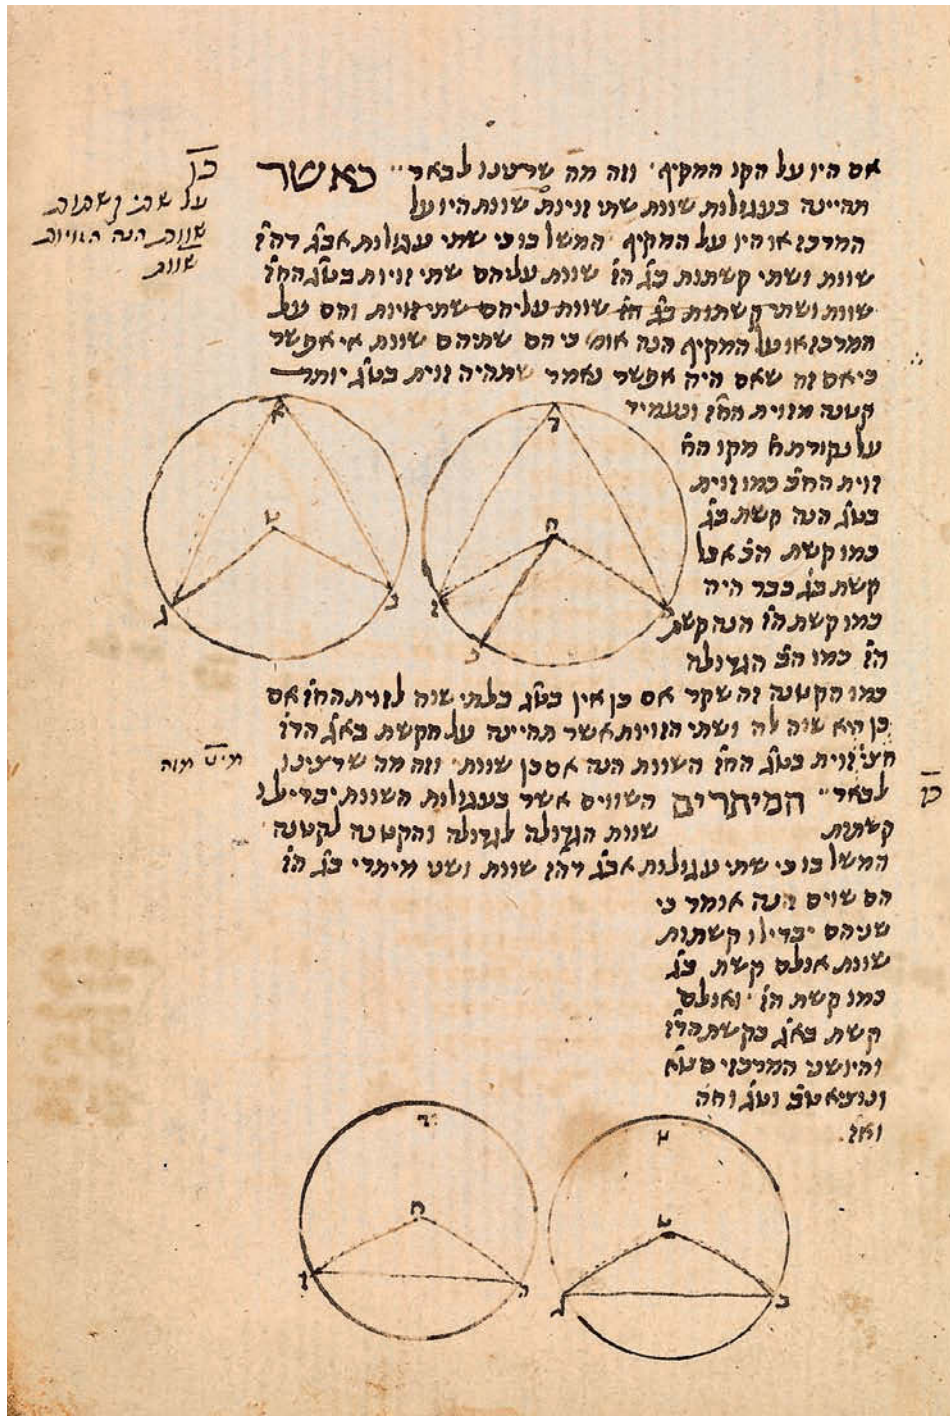 אם היו על הקו המקיף׳ וזה מה שרצינו לבאר׳׳ כאשר
תהיינה בעגולות שוות שתי זויות שוות היו על
המרכז או היו על המקיף׳ המשל בו כי שתי עגולות אב̇ג̇ דה̇ז̇
שוות ושתי קשתות ב̇ג̇ ה̇ז̇ שוות עליהם שתי זויות בט̇ג̇ הח̇ז̇
שוות ושתי קשתות ב̇ג̇ ה̇ז̇ שוות עליהם שתי זויות והם על
המרכז או על המקיף הנה אומ׳ כי הם שתיהם שוות אי אפשר
כי אם זה שאם היה אפשר נאמר שתהיה זוית בט̇ג̇ יותר
קטנה מזוית הח̇ז̇ ונעמיד
על נקודת ח̇ מקו ה̇ח̇
זוית הח̇כ̇ כמו זוית
בט̇ג̇ הנה קשת ב̇ג̇
כמו קשת ה̇כ̇ אבל
קשת ב̇ג̇ כבר היה
כמו קשת ה̇ז̇ הנה קשת
ה̇ז̇ כמו ה̇כ̇ הגדולה
כמו הקטנה זה שקר אם כן אין בט̇ג̇ בלתי שוה לזוית הח̇ז̇ אם
כן היא שוה לה ושתי הזויות אשר תהיינה על הקשת בא̇ג̇ הד̇ז̇
חצי זוית בט̇ג̇ הח̇ז̇ השוות הנה אם כן שוות׳ וזה מה שרצינו
לבאר׳׳ המיתרים השווים אשר בעגולות השוות יבדילו
קשתות שוות הגדולה לגדולה והקטנה לקטנה
המשל בו כי שתי עגולות אב̇ג̇ דה̇ז̇ שוות ושני מיתרי ב̇ג̇ ה̇ז̇
הם שוים הנה אומר כי
שניהם יבדילו קשתות
שוות אולם קשת ב̇ג̇
כמו קשת ה̇ז̇ ׳ ואולם
קשת בא̇ג̇ כקשת הד̇ז̇
ונוציא ט̇ב̇ וט̇ג̇ וח̇ה̇
כ̅ו̅
על שתי קשתות
שוות הנה הזויות
שוות
כ̅ז̅
א
ט
ג
ב
ד
ח
ז
ה
כ
ד
ח
ז
ה
ט
ג
ב